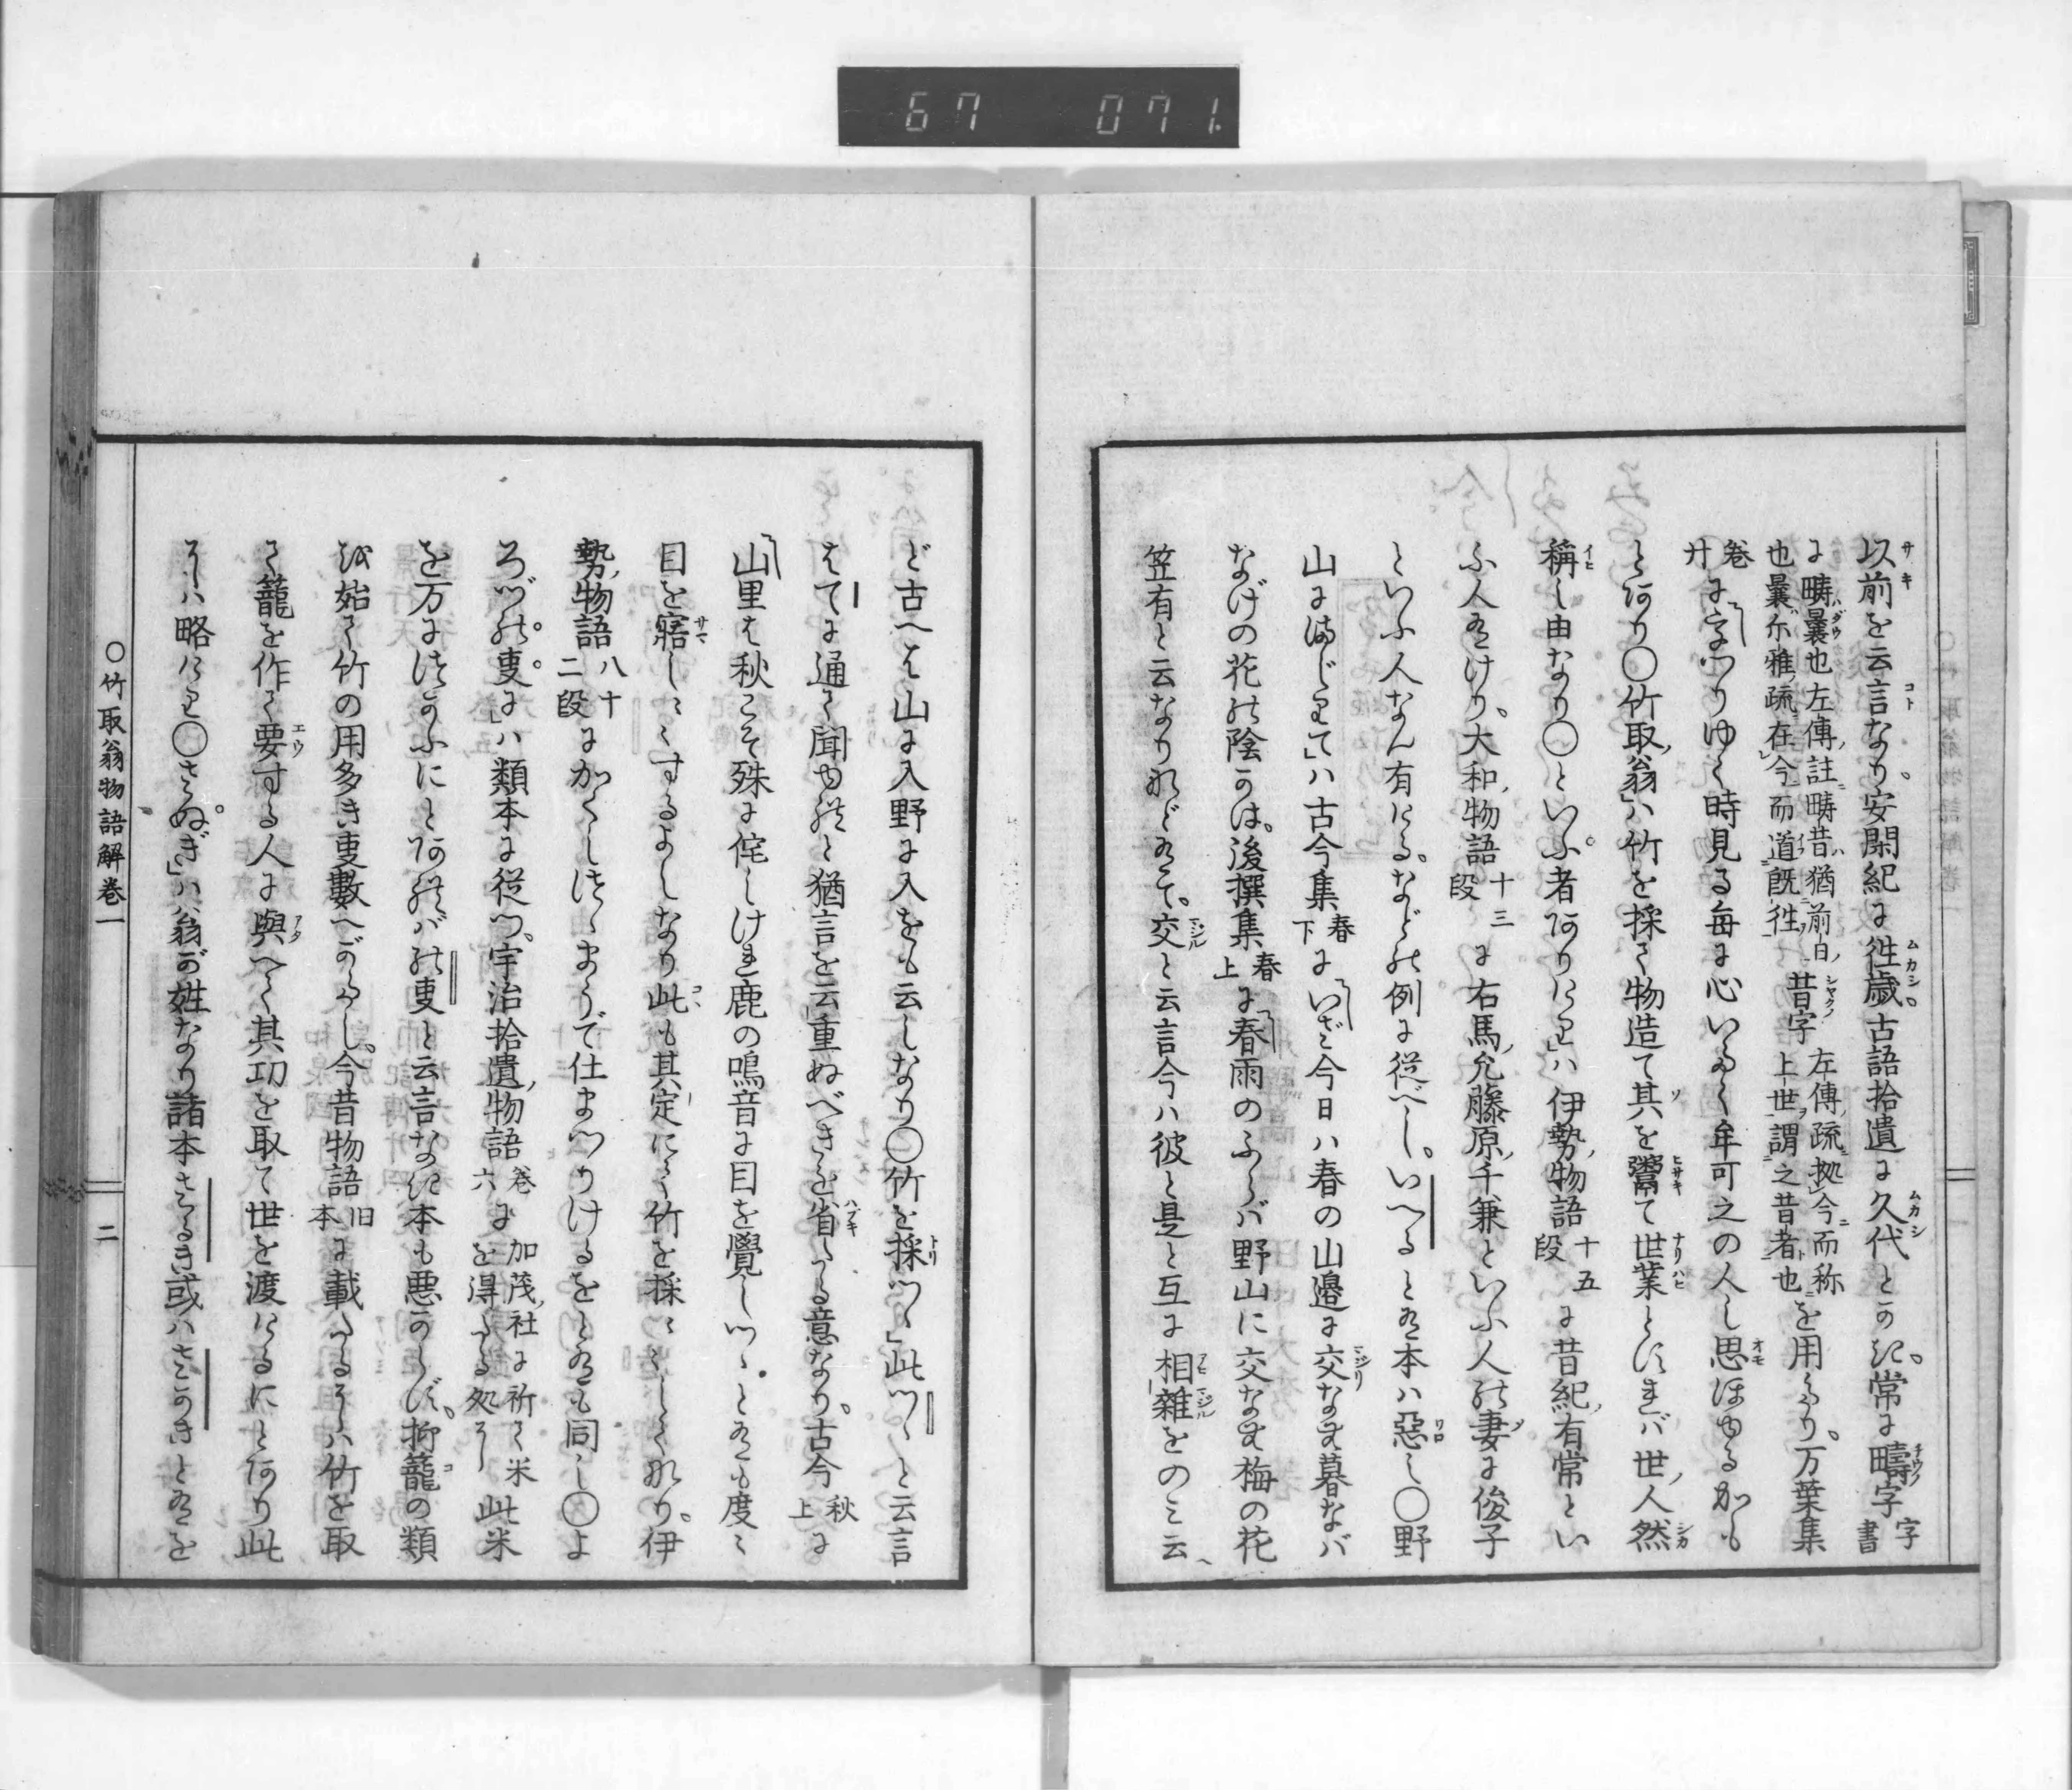 67 071.
以前を云言なり。安閑紀に徃歳。古語拾遺に久代とかき。常に疇字 字書
に疇曩也左傳註疇昔猶前日 也曩尓雅疏在今而道既徃 昔字 左傳疏拠今而称上世謂之昔者也 を用たり。万葉集
巻廿に うつりゆく時見る毎に心いたく牟可之の人し思ほゆるかも
とあり○竹取翁」ハ竹を採て物造て其を鬻て世業とせれバ世人然
稱し由なり○といふ者ありけり」ハ伊勢物語 十五段 に昔紀有常とい
ふ人有けり。大和物語 十三段 に右馬允藤原千兼といふ人の妻に俊子
といふ人なん有ける。などの例に従べし。いへるとある本ハ惡し○野
山にまじりて」ハ古今集 春下 にいざ今日ハ春の山邉に交なむ暮なバ
なげの花の陰かは。後撰集 春上 に春雨のふらバ野山に交なむ梅の花
笠有と云なりなどあるて。交と云言今ハ彼と是と互に相雜をのミ云
ど古へは山に入野に入をも云しなり○竹を採つゝ」此つゝと云言
はてに通て聞ゆれと猶言を云重ぬべきを省たる意なり。古今 秋上 に
山里は秋こそ殊に侘しけれ鹿の鳴音に目を覺しつゝとあるも度々
目を寤しゝするよしなり此も其定にて竹を採ゝしてなり。伊
勢物語 八十二段 にかくしつゝまうで仕まつりけるをとあるも同し○よ
ろづの。叓に」ハ類本に従つ。宇治拾遺物語 巻六 に 加茂社に祈て米を得たる処 此米
を万につかふにとあれバの叓と云言なき本も悪からず。抑籠の類
を始て竹の用多き叓數へがたし。今昔物語 旧本 に載たるハ竹を取
て籠を作て要する人に與へて其功を取て世を渡けるにとあり此
ハ略けり○さぬぎ」ハ翁が姓なり諸本さるき或ハさかきとあるを
○竹取翁物語解巻一 二